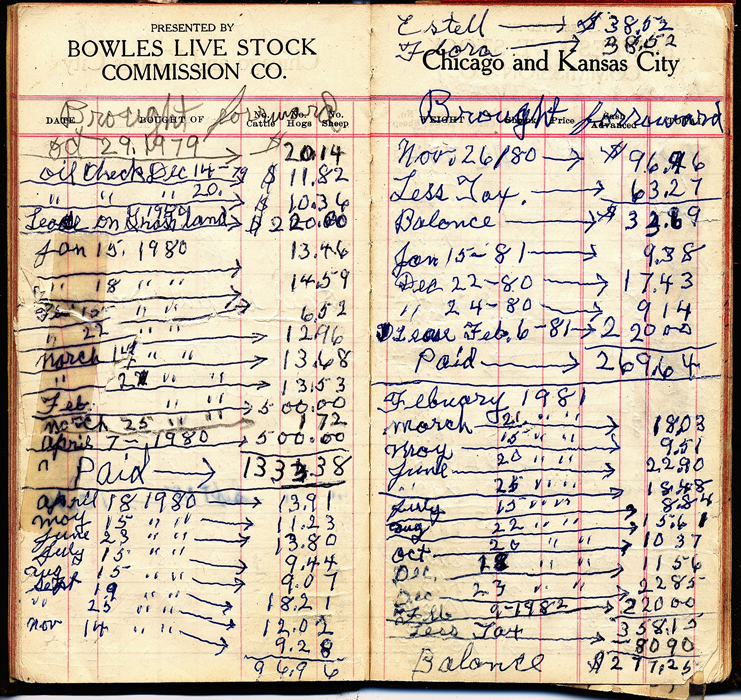 PRESENTED BY
BOWLES LIVE STOCK
COMMISSION CO.
Brought forward
DATE BOUGHT OF No. Cattle No. Hogs No. Sheep
Oct 29. 1979 $ 20.14
oil Check Dec 14-79 $ 11.82
" " " 20. $ 10.36
Lease on land 1980 $ 220.00
Jan 15. 1980 13.46
" 18 " " 14.59
15 " " 6.52
" 22 " " 12.96
March 14 " " 13.68
" " " 13.53
Feb. " " 500.00
March 25 " " 1 72
April 7-, 1980 500.00
" Paid 1333.38
April 18 1980 13.91
May 15 " " 11.23
June 23 " " 13.80
July 15 " " 9.44
Aug 15 " " 9.07
Sept 19 " " 18.21
" 25 " " 12.02
Nov 14 " " 9.28
96.96
Estell $ 38.52
Flora 38.52
Chicago and Kansas City
Brought forward
WEIGHT Price Cash Advanced
Nov. 26/80 $ 96.96
Less Tax. 63.27
Balonce $ 33.69
Jan 15-81 9.38
Dec 22-80 17.43
" 24-80 9 14
Lease Feb. 6-81 220 00
Paid 269.64
February 1981
March 21 " " 18.03
May 15 " " 9.51
June 20 " " 22.90
" 25 " " 18.48
July 15 " " 8.84
Aug 22 " " 15.61
Oct 20 " " 10 37
Dec. 18 " " 11 56
Dec 23 " " 22 85
Feb 9-1982 220 00
Less Tax 358.15
80 90
Balonce $ 277.25